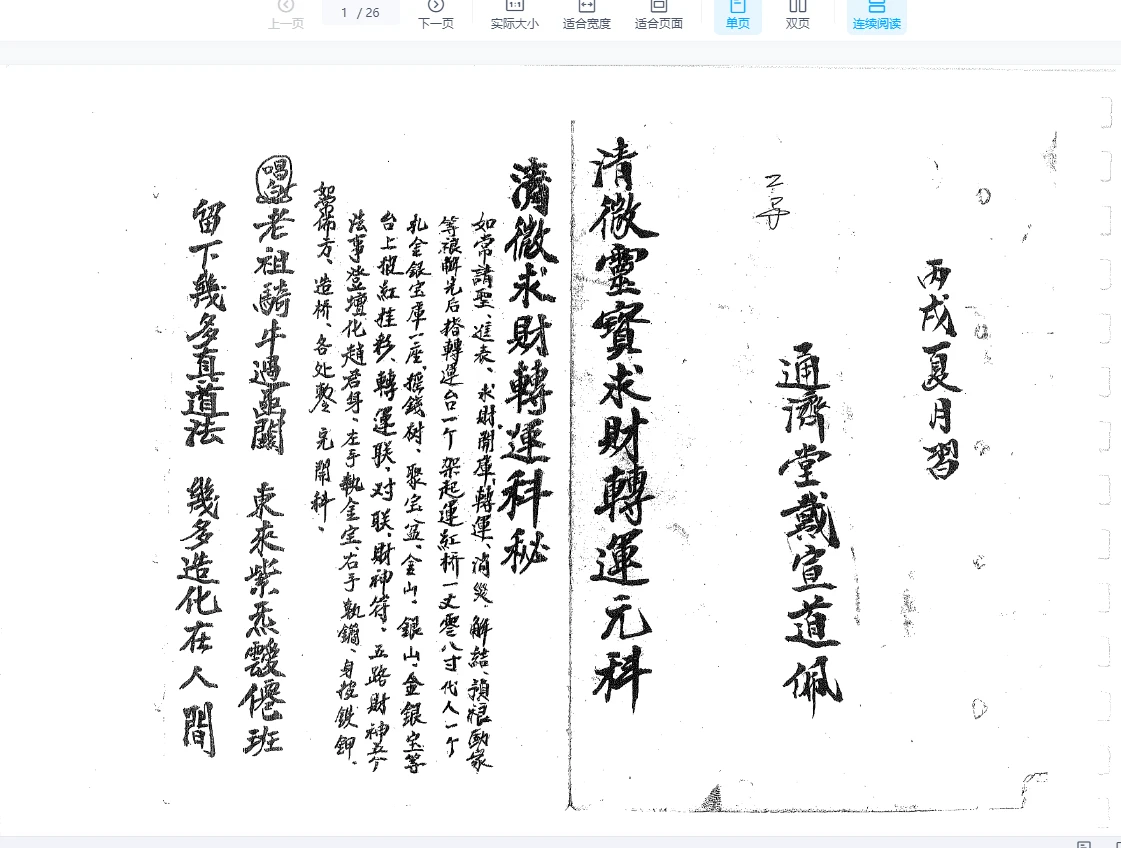 上一页
1 / 26
下一页
实际大小
适合宽度
适合页面
单页
双页
连续阅读
丙戌夏月習
通濟堂戴宣道佩
清微靈寶求財轉運元科
清微求財轉運科秘
如常請聖、進表、求財開庫、轉運、消災、解結、
等 解 后搭轉運台一个 架起運紅桥一丈零八寸 代人一个
扎金銀宝庫一座、摇錢树、聚宝盆、金山、銀山、金銀宝等
台上披紅挂彩、轉運联、对联、財神符、五路財神五个
法事登壇化趙君身、左手執金宝、右手執鐧、身披鉄鉀、
如常佈方、造桥、各处 完開科、
唱 老祖騎牛過 關 東來紫炁靉僊班
留下幾多真道法 幾多造化在人間